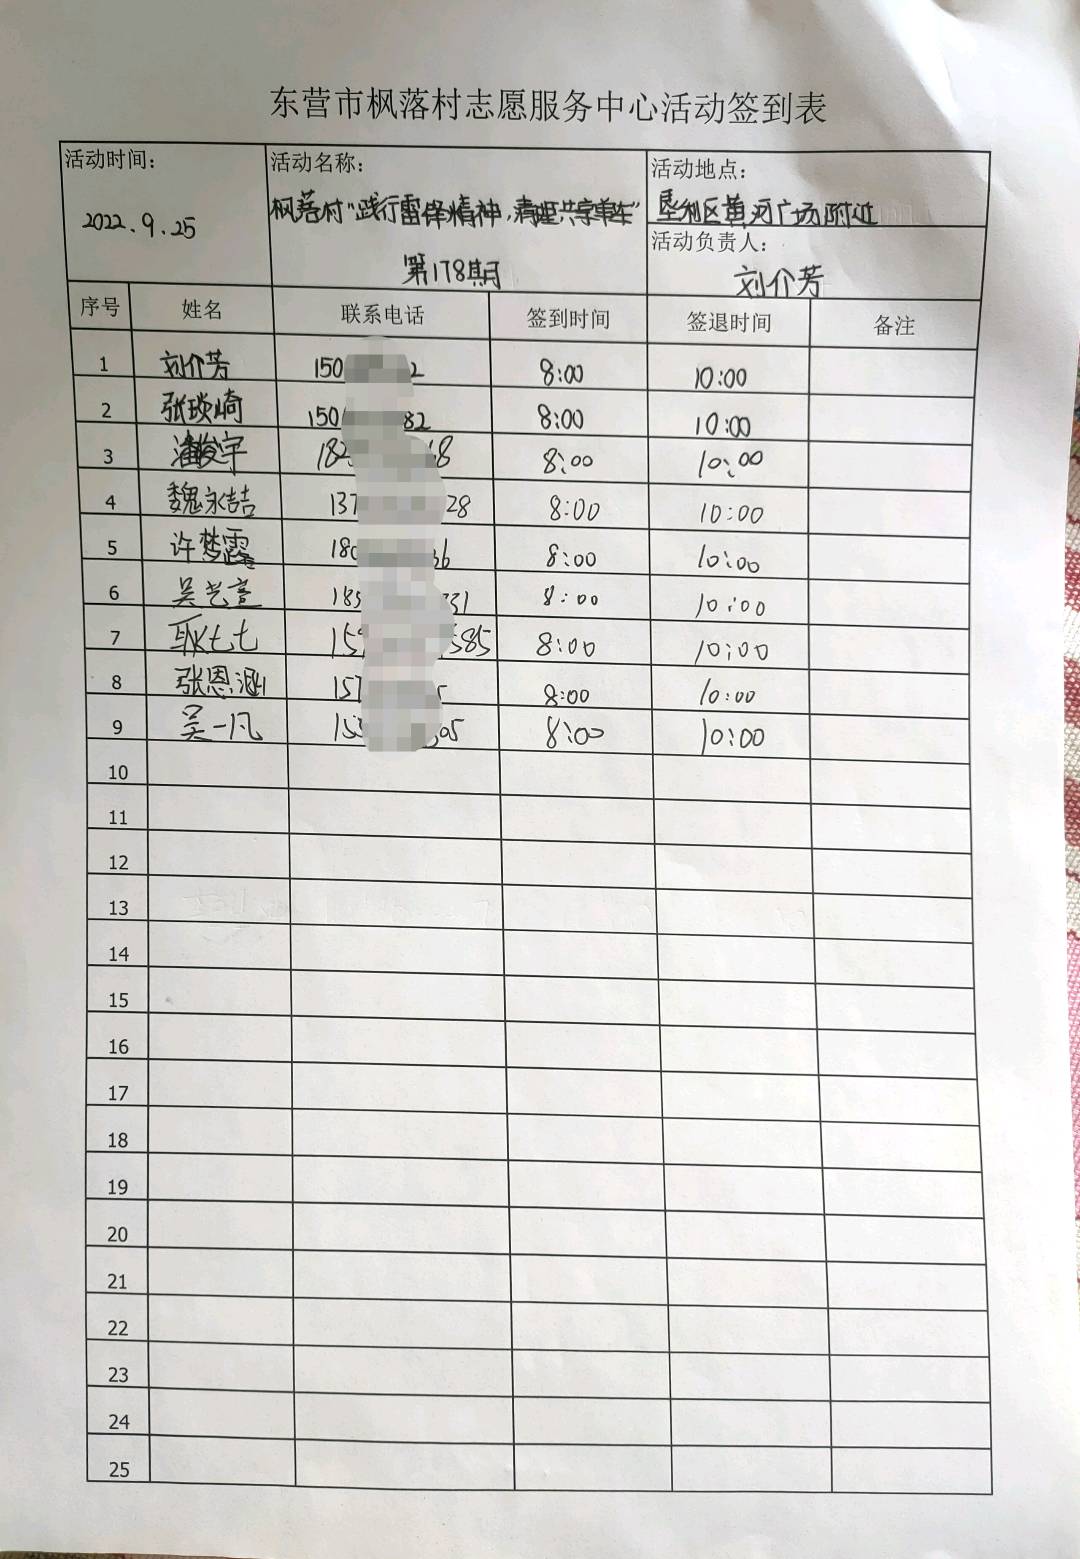 东营市枫落村志愿服务中心活动签到表
活动时间： 活动名称： 活动地点：
2022.9.25 枫落村“践行雷锋精神，清理共享单车” 垦利区黄河广场附近
第178期 活动负责人：
刘介芳
序号 姓名 联系电话 签到时间 签退时间 备注
1 刘介芳 150 2 8:00 10:00
2 张琰崎 150 82 8:00 10:00
3 潘俊宇 182 68 8:00 10:00
4 魏永喆 137 28 8:00 10:00
5 许梦露 180 36 8:00 10:00
6 吴艺萱 185 31 8:00 10:00
7 耿七七 15 585 8:00 10:00
8 张恩涵 157 5 8:00 10:00
9 吴一凡 153 05 8:00 10:00
10
11
12
13
14
15
16
17
18
19
20
21
22
23
24
25